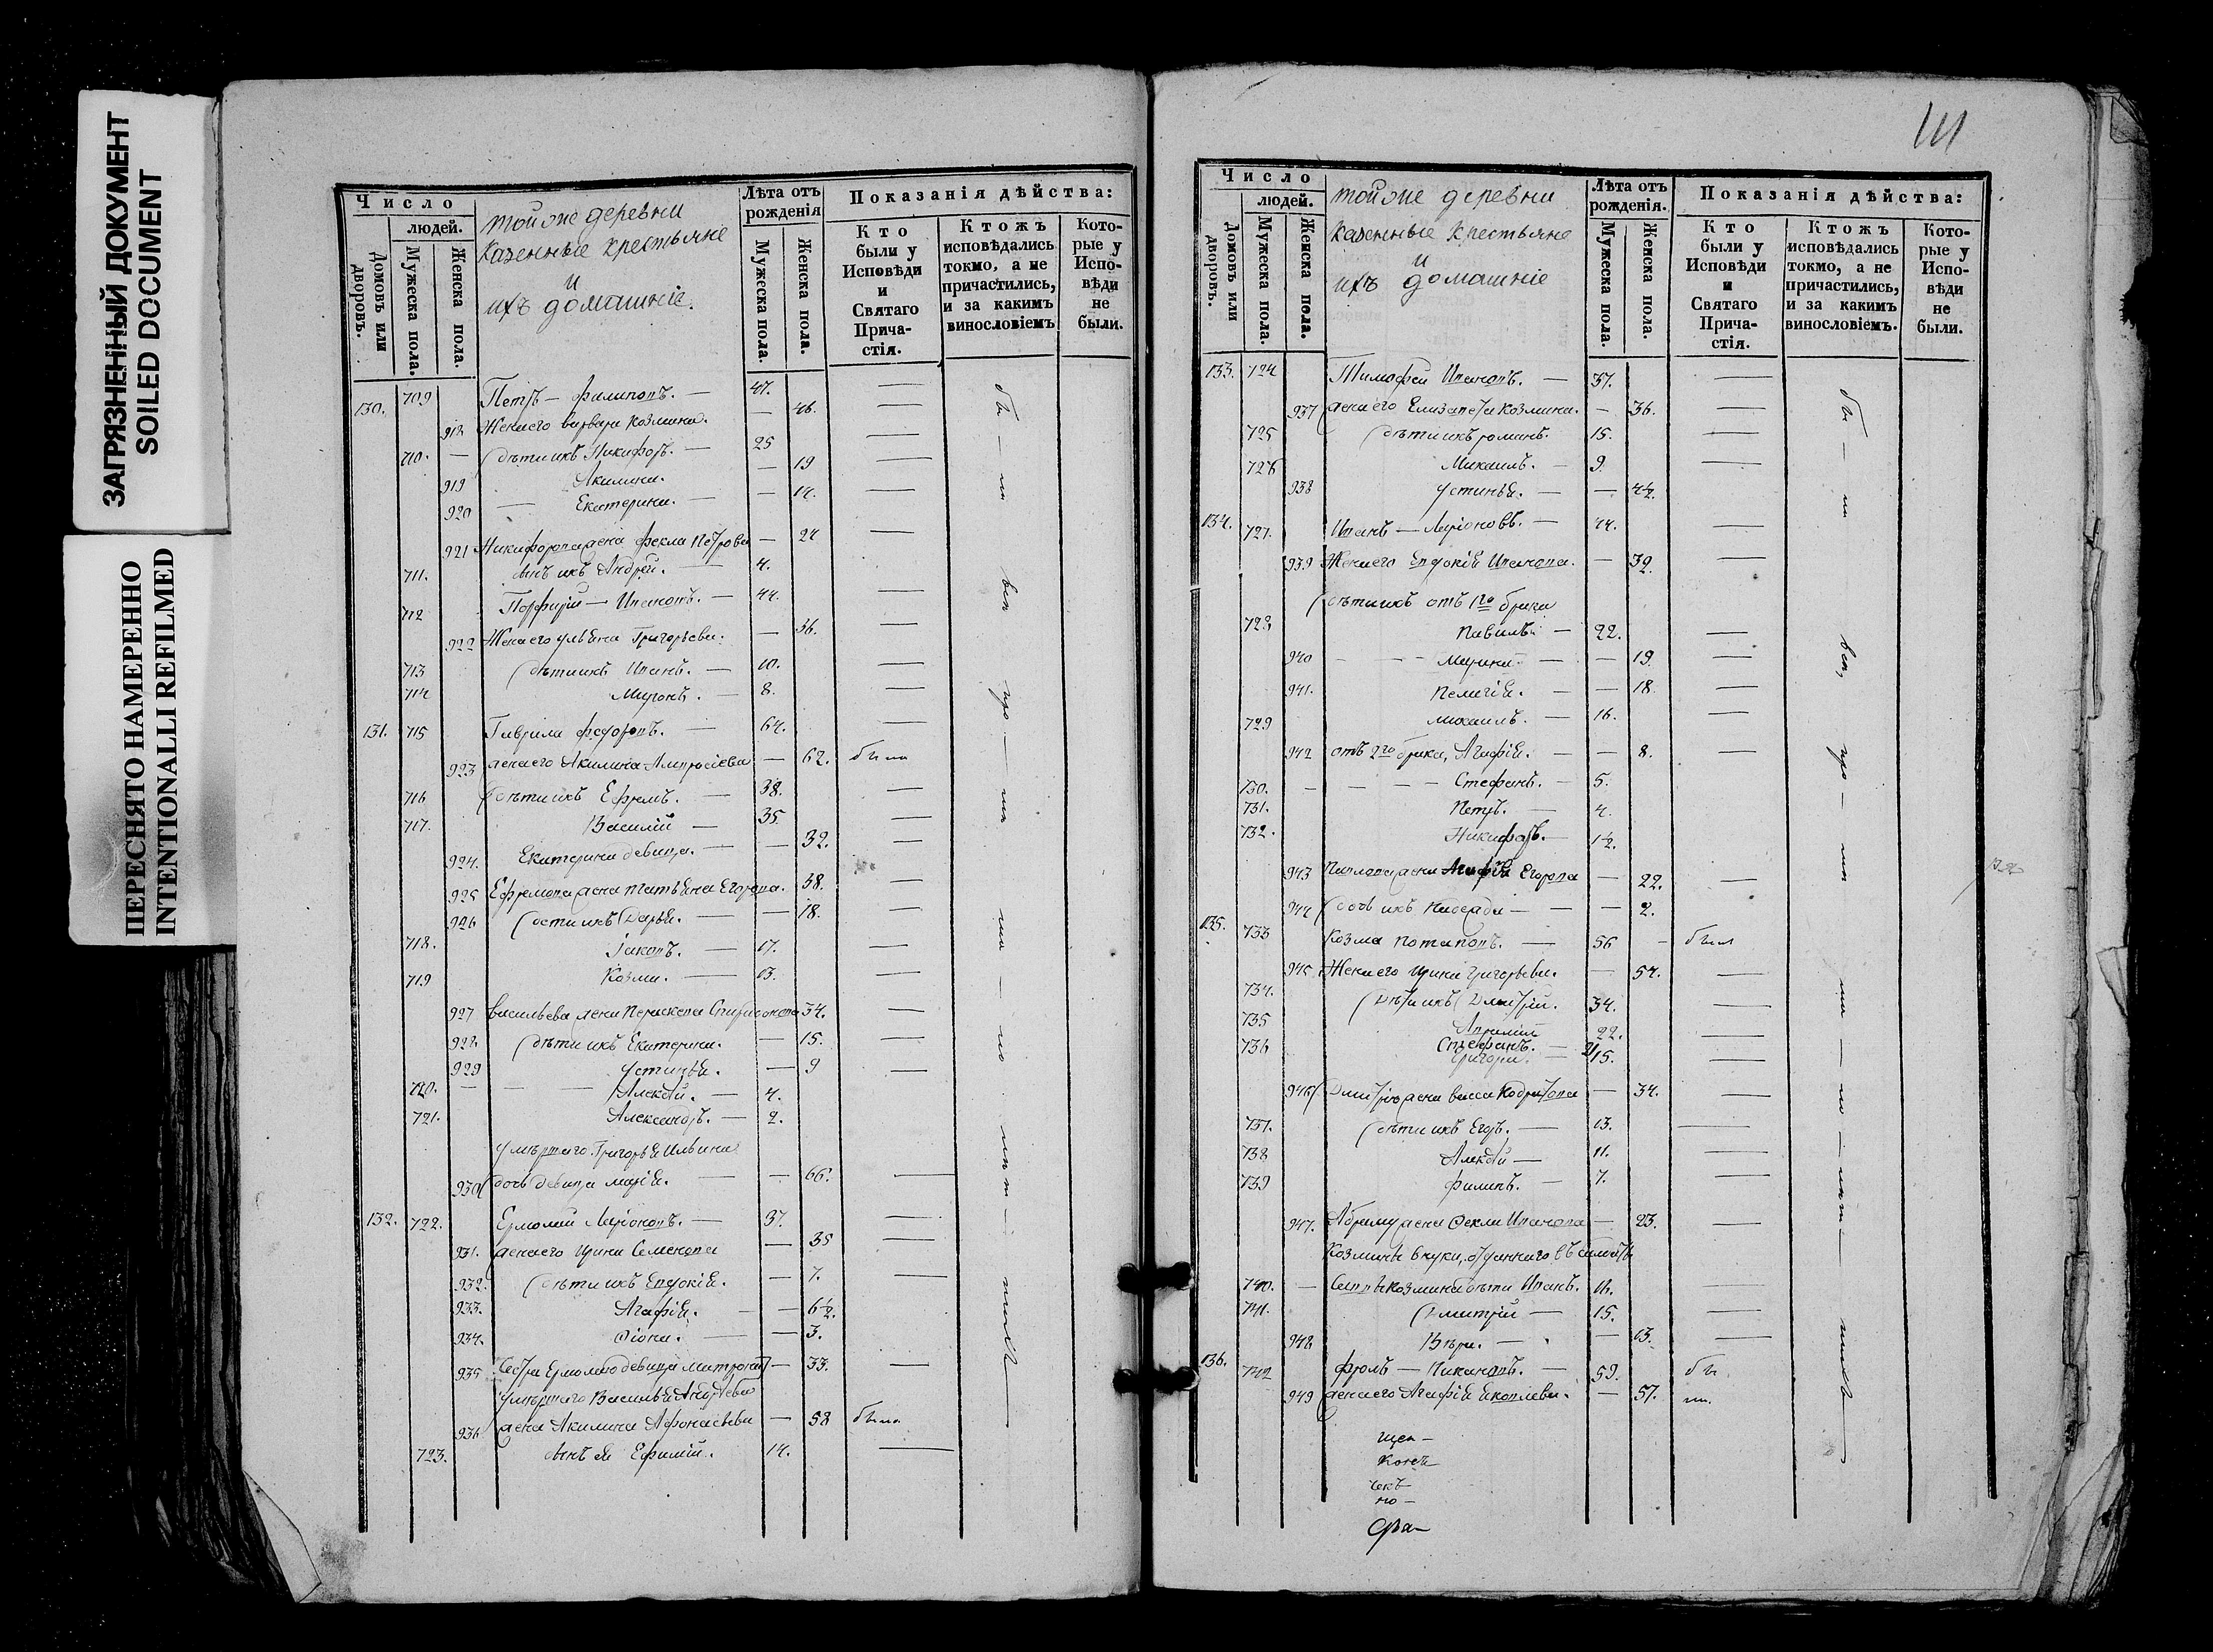 ЗАГРЯЗНЕННЫЙ ДОКУМЕНТ
SOILED DOCUMENT
ПЕРЕСНЯТО НАМЕРЕННО
INTENTIONALLI REFILMED
Число
людей.
Домовъ или дворовъ.
Мужеска пола.
Женска пола.
той же деревни
казенные крестьяне
и
ихъ домашніе.
Лѣта отъ рожденія
Мужеска пола.
Женска пола.
Показанія дѣйства:
Кто были у Исповѣди и Святаго Причастія.
Ктожъ исповѣдались токмо, а не причастились, и за какимъ винословіемъ
Которые у Исповѣди не были.
130. 709 Петръ — Филиповъ. — 47.
918 Жена его варвара Козмина. — 46.
710. — Дѣти ихъ Никифоръ. — 25
919 Акилина. — 19
920 — Екатерина. — — 14.
921 Никифорова жена Фекла Петрова — 24
711. сынъ ихъ Андрей. — 4.
712 Порфирій — Ивановъ. — 44.
922 Жена его ульяна Григорьева. — 36.
713 Дѣти ихъ Иванъ. — 10.
714 Миронъ. — 8.
131. 715 Гаврила Федоровъ. — 64.
923 жена его Акилина Амвросіева — 62. была
716 Дѣти ихъ Ефремъ. — 38.
717. Василій — 35
924. Екатерина девица. — — 32.
925 Ефремова жена татьяна Егорова. 38.
926 Дети ихъ Дарья. — — 18.
718. Іаковъ. — 17.
719 Козма. — 13.
927 Васильева жена Параскева Спиридонова 34.
928 Дѣти ихъ Екатерина. — 15.
929 устинья. — 9
720. — — — Алексѣй. — 4.
721. Александръ. — 2.
умершаго Григорья Ильина
930 дочь девица марія. — — 66.
132. 722. Ермолай Ларіоновъ. — 37.
931. жена его Ирина Семенова — 35
932. Дѣти ихъ Евдокія. — 7.
933. Агафія. — — 6½.
934. — — 3.
935 Сестра Ермолаева девица — 33.
умершаго Василья Андреева
936 жена Акилина Афонасьева — 58 была
723. сынъ ея Ефимій. 14.
111
Число
людей.
Домовъ или дворовъ.
Мужеска пола.
Женска пола.
той же деревни
казенные крестьяне
и
ихъ домашніе
Лѣта отъ рожденія.
Мужеска пола.
Женска пола.
Показанія дѣйства:
Кто были у Исповѣди и Святаго Причастія.
Ктожъ исповѣдались токмо, а не причастились, и за какимъ винословіемъ.
Которые у Исповѣди не были.
133. 724 Тимофей Ивановъ. — 37.
937 жена его Елизавета Козмина. — 36.
725 Дѣти ихъ романъ. 15.
726 Михаилъ. — 9.
938 устинья. — — 4½.
134. 727. Иванъ — Ларіоновъ. — 44.
939 Жена его Евдокія Иванова. — 39.
Дѣти ихъ отъ 1го брака
728 — 22.
940 — — — Марина. — — 19.
941. Пелагія. — — 18.
729 михаилъ. — 16.
942 отъ 2го брака, Агафія. — — 8.
730. — — — — Стефанъ. — 5.
731. Петръ. — 4.
732. Никифоръ. — 1½.
943 жена Агафія Егорова — 22.
944 Дочь ихъ — — 2.
135. 733 Козма Потаповъ. — 56 — былъ
945 Жена его Ирина Григорьева. — 54.
734. Дѣти ихъ Дмитрій. 34.
735 22.
736 Стефанъ. — 21
Григорій. — 15.
946 Дмитрія жена васса Кодратова — 34.
737. Дѣти ихъ Егоръ. — 13.
738 Алексѣй — 11.
739 Филипъ. — 7.
947. жена Фекла Иванова — 23.
Козмины внуки, отданнаго въ солдаты
740. — Козмина дѣти Иванъ. 16.
741. Дмитрій — 15.
948 Вѣра. — — 13.
136. 742 Фролъ — Никаноръ. — 59. бы
949 жена его Агафія Яковлева. — 57. ли.